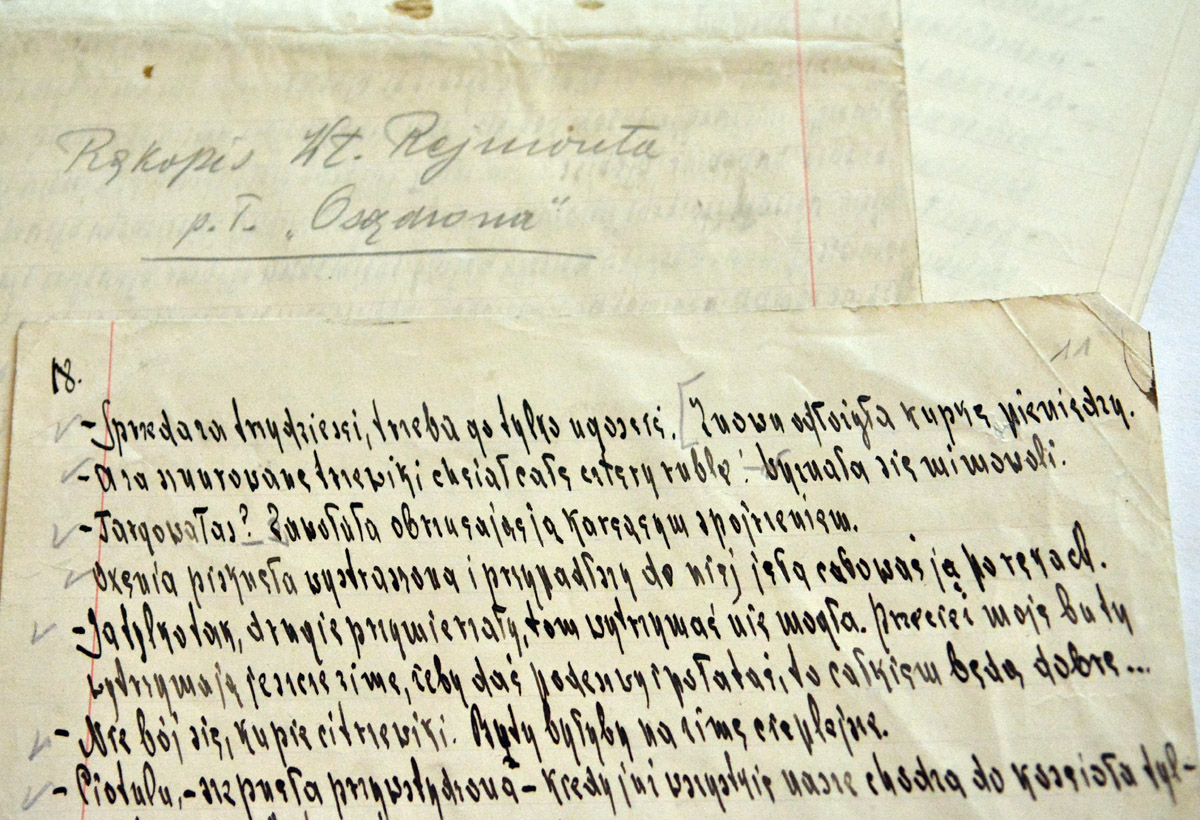 Rękopis Wł. Rejmonta
p.t. „Osądzona"
18.
11
- Sprzeda za trzydzieści, trzeba go tylko ugościć. [Znowu odłożyła kupkę pieniędzy.
- A za sznurowane trzewiki chciał całe cztery ruble! - wyznała się mimowoli.
- Targowałaś? Zawołała obrzucając ją karcącym spojrzeniem.
piskneła wystraszona i przypadłszy do niej jęła całować ją po rękach.
- Ja tylko tak, drugie przymierzały, tom wytrzymać nie mogła. Przecież moje buty
wytrzymają jeszcze zimę, żeby dać podeszwy i połatać, to całkiem będą dobre...
- Nie bój się, kupię ci trzewiki. Buty byłyby na zimę cieplejsze.
- Ciotulu, - szepnęła przywstydzona - kiedy już wszystkie nasze chodzą do kościoła tyl-